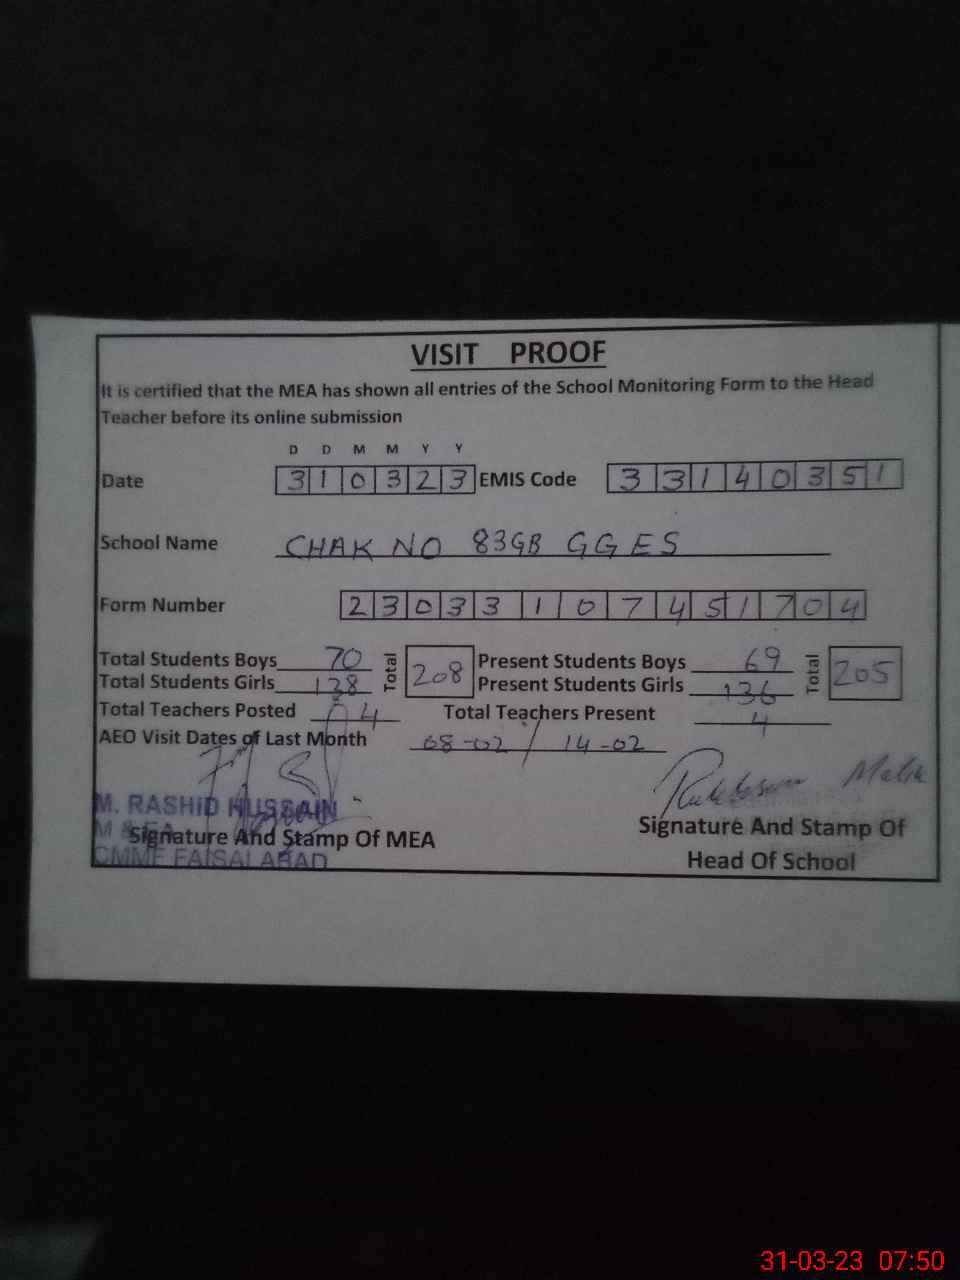 VISIT PROOF
It is certified that the MEA has shown all entries of the School Monitoring Form to the Head
Teacher before its online submission
D D M M Y Y
Date 310323 EMIS Code 33140351
School Name CHAK NO 83GB GGES
Form Number 23033107451704
Total Students Boys 70 Total 208 Present Students Boys 69 Total 205
Total Students Girls 138 Present Students Girls 136
Total Teachers Posted 04 Total Teachers Present 4
AEO Visit Dates of Last Month 08-02 / 14-02
Malik
M. RASHID HUSSAIN
M & EA
Signature And Stamp Of MEA Signature And Stamp Of
CMMF FAISALABAD Head Of School
31-03-23 07:50